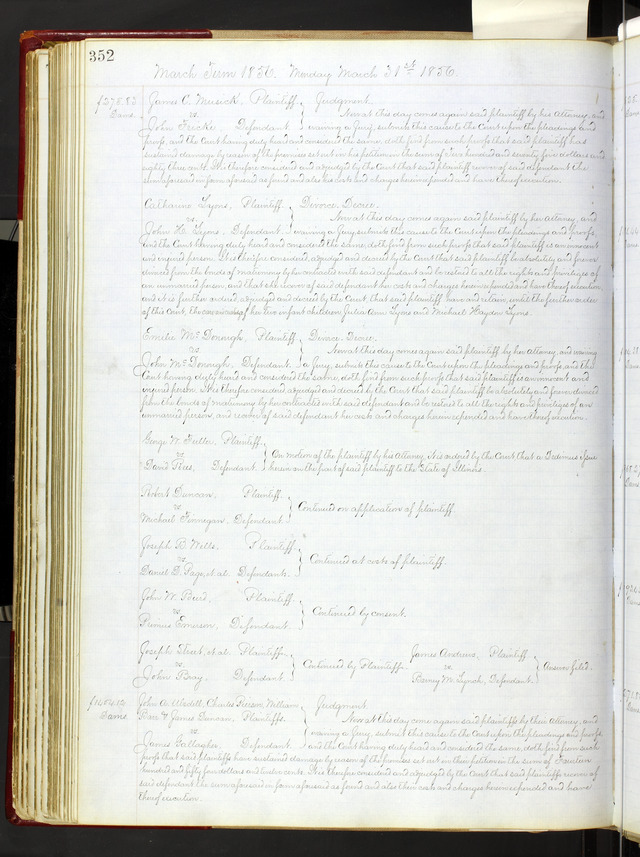 352
March Term 1856. Monday March 31st 1856.
$275.83 James C. Musick, Plaintiff } Judgment.
Dams. vs. Now at this day comes again said plaintiff by his Attorney, and
John Fecke, Defendant waiving a Jury, submits this cause to the Court upon the pleadings and
proofs, and the Court having duly heard and considered the same, doth find from such proofs that said plaintiff has
sustained damage by reason of the premises set out in his petition in the sum of hundred and seventy five dollars and
eighty three cents. It is therefore considered and adjudged by the Court that said plaintiff recover of said defendant the
sum aforesaid in form aforesaid as found and also his costs and charges herein expended and have thereof execution.
Catharine Lyons, Plaintiff } Divorce. Decree.
vs. Now at this day comes again said plaintiff by her Attorney, and
John H. Lyons, Defendant. waiving a Jury, submits this cause to the Court upon the pleadings and proofs,
and the Court having duly heard and considered the same, doth find from such proofs that said plaintiff is an innocent
and injured person. It is therefore considered, adjudged and decreed by the Court that said plaintiff be absolutely and forever
divorced from the bonds of matrimony by her contracted with said defendant and be restored to all the rights and privileges of
an unmarried person, and that she recover of said defendant her costs and charges herein expended and have thereof execution
and it is further ordered, adjudged and decreed by the Court, that said plaintiff have and retain, until the further order
of this Court, the care and custody of her two infant children Julia Ann Lyons and Michael Haydon Lyons.
Emilie McDonough, Plaintiff } Divorce. Decree.
vs. Now at this day comes again said plaintiff by her Attorney, and waiving
John McDonough, Defendant. a Jury, submits this cause to the Court upon the pleadings and proofs, and the
Court having duly heard and considered the same, doth find from such proofs that said plaintiff is an innocent and
injured person. It is therefore considered adjudged and decreed by the Court that said plaintiff be absolutely and forever divorced
from the bonds of matrimony by her contracted with said defendant and be restored to all the rights and privileges of an
unmarried person, and recover of said defendant her costs and charges herein expended and have thereof execution.
George W. Fuller, Plaintiff }
vs. On motion of the plaintiff by his Attorney, it is ordered by the Court that a Dedimus issue
David Rees, Defendant herein on the part of said plaintiff to the State of Illinois.
Robert Duncan, Plaintiff }
vs. Continued on application of plaintiff.
Michael Finnegan, Defendant
Joseph B. Wells, Plaintiff }
vs. Continued at costs of plaintiff.
Daniel D. Page, et al. Defendants.
John W. Reed, Plaintiff }
vs. Continued by consent.
Primus Emerson, Defendant
Joseph Steet, et al. Plaintiffs. } James Andrews, Plaintiff }
vs. Continued by Plaintiff. vs. Answer filed.
John Bray, Defendant. Barney M. Lynch, Defendant.
$1454.12 John A. Ubsdell, Charles Pierson, William } Judgment
Dams. Barr & James Duncan, Plaintiffs. Now at this day come again said plaintiffs by their Attorney, and
vs. waiving a Jury, submit this cause to the Court upon the pleadings and proofs
James Gallagher, Defendant and the Court having duly heard and considered the same, doth find from such
proofs that said plaintiffs have sustained damage by reason of the premises set out in their petition in the sum of Fourteen
hundred and fifty four dollars and twelve cents. It is therefore considered and adjudged by the Court that said plaintiffs recover of
said defendant the sum aforesaid in form aforesaid as found and also their costs and charges herein expended and have
thereof execution.